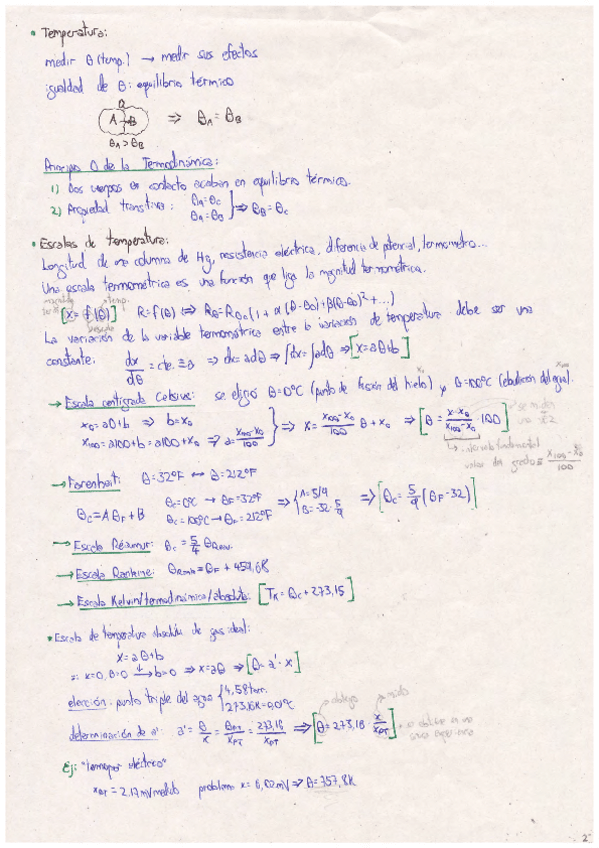 • Temperatura:
medir θ (temp.) → medir sus efectos
igualdad de θ: equilibrio térmico
Q
A → B ⇒ θA = θB
θA > θB
Principio 0 de la Termodinámica:
1) Dos cuerpos en contacto acaban en equilibrio térmico.
2) Propiedad transitiva: θA = θC
θA = θB } ⇒ θB = θC
• Escalas de temperatura:
Longitud de una columna de Hg, resistencia eléctrica, diferencia de potencial, termómetro...
Una escala termométrica es una función que liga la magnitud termométrica.
magnitud temp.
[x = f(θ)] R = f(θ) ⇔ Rθ = Rθ0 (1 + α(θ-θ0) + β(θ-θ0)² + ...)
La variación de la variable termométrica entre la variación de temperatura debe ser una
constante: dx/dθ = cte. ≡ a ⇒ dx = adθ ⇒ ∫dx = ∫adθ ⇒ [x = aθ + b]
→ Escala centígrada Celsius: se eligió θ = 0ºC (punto de fusión del hielo) y θ = 100ºC (ebullición del agua).
x0 x100
x0 = a0 + b ⇒ b = x0
x100 = a100 + b = a100 + x0 ⇒ a = (x100 - x0)/100 } ⇒ x = (x100 - x0)/100 θ + x0 ⇒ [θ = (x - x0)/(x100 - x0) 100]
intervalo fundamental
valor del grado ≡ (x100 - x0)/100
→ Farenheit: θ = 32ºF ↔ θ = 212ºF
θC = AθF + B θC = 0ºC → θF = 32ºF
θC = 100ºC → θF = 212ºF ⇒ { A = 5/9
B = -32·5/9 ⇒ [θC = 5/9 (θF - 32)]
→ Escala Réaumur: θC = 5/4 θReau.
→ Escala Rankine: θRank = θF + 459,68
→ Escala Kelvin/termodinámica/absoluta: [TK = θC + 273,15]
• Escala de temperatura absoluta de gas ideal:
x = aθ + b
si x = 0, θ = 0 → b = 0 ⇒ x = aθ ⇒ [θ = a' · x]
elección: punto triple del agua { 4,58 torr.
273,16K = 0,01ºC
determinación de a': a' = θ/x = θPT/xPT = 273,16/xPT ⇒ [θ = 273,16 x/xPT]
Ej: "termopar eléctrico"
xPT = 2,17mV medido problema x = 6,02mV ⇒ θ = 757,8K
2